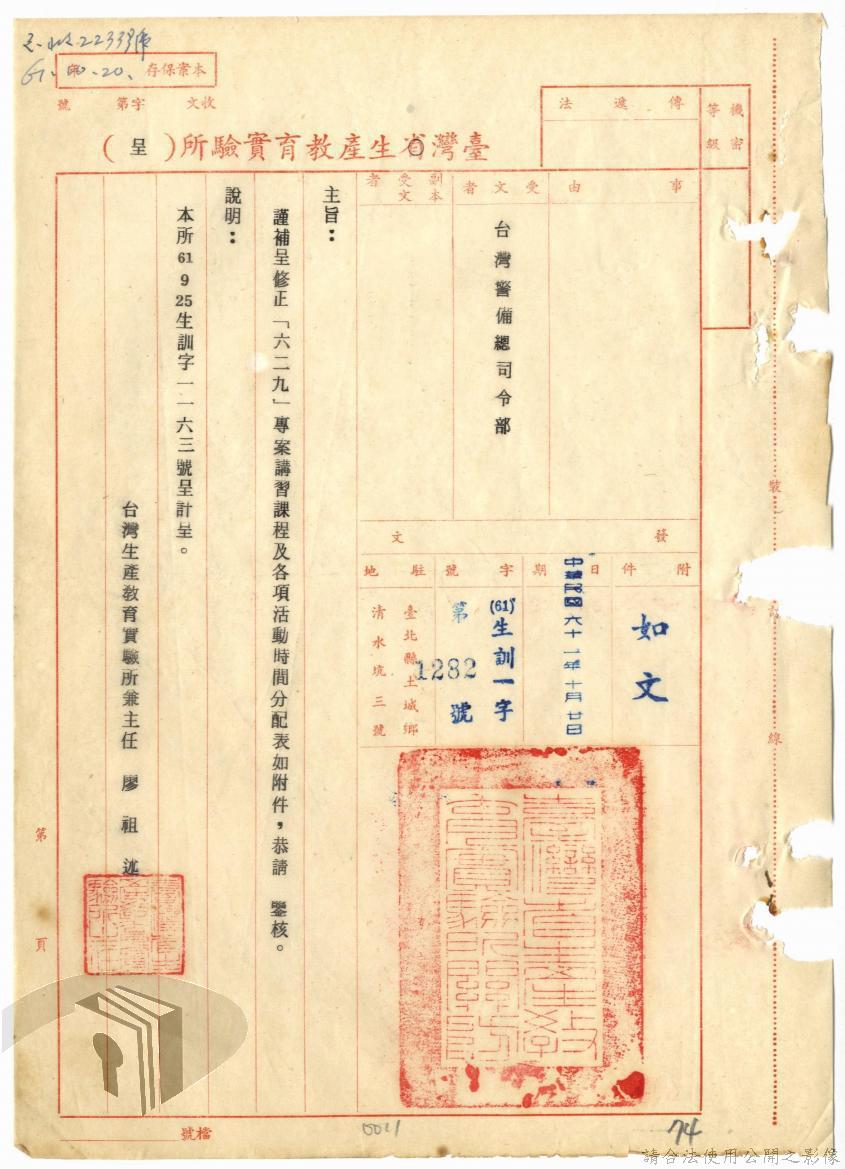 61.10.20.
本案保存 年
收文 字第 號
臺灣省生產教育實驗所(呈)
機密等級
傳遞法
事由
受文者
副本受文者
台灣警備總司令部
發文
附件
如文
日期
中華民國六十一年十月廿日
字號
(61)生訓一字
第1282號
駐地
臺北縣土城鄉
清水坑三號
主旨：
謹補呈修正「六二九」專案講習課程及各項活動時間分配表如附件，恭請 鑒核。
說明：
本所61 9 25生訓字一一六三號呈計呈。
台灣生產教育實驗所兼主任 廖祖述
臺灣省生產教育實驗所關防
裝
訂
線
第 頁
檔號
0021
74
請合法使用公開之影像